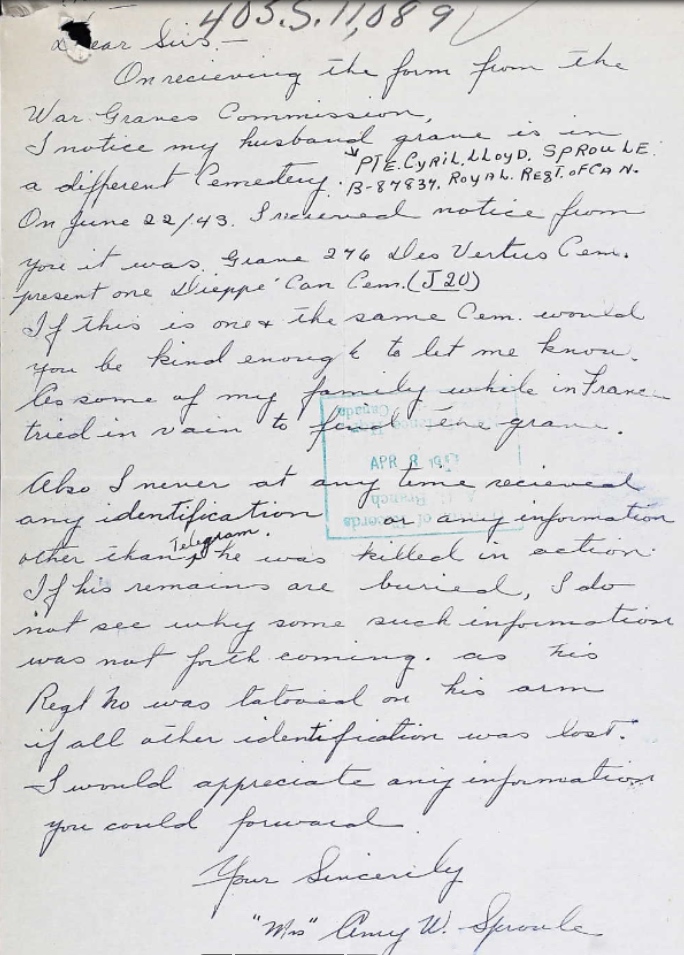 405.S.11,089
Dear Sirs.—
On recieving the form from the
War Graves Commission,
I notice my husband grave is in
PTE. CYRIL. LLOYD. SPROULE.
a different Cemetery. B-87837. ROYAL. REGT. OF CAN.
On June 22/43. I recieved notice from
you it was. Grave 276 Des Vertus Cem.
present one Dieppe Can Cem. (J20)
If this is one & the same Cem. would
you be kind enough to let me know.
As some of my family while in France
tried in vain to find the grave.
APR 8
Also I never at any time recieved
any identification or any information
Branch
of Records
Telegram.
other than he was killed in action.
If his remains are buried, I do
not see why some such information
was not forth coming. as his
Regt No was tatooed on his arm
if all other identification was lost.
I would appreciate any information
you could forward
Your Sincerily
"Mrs" Amy W. Sproule